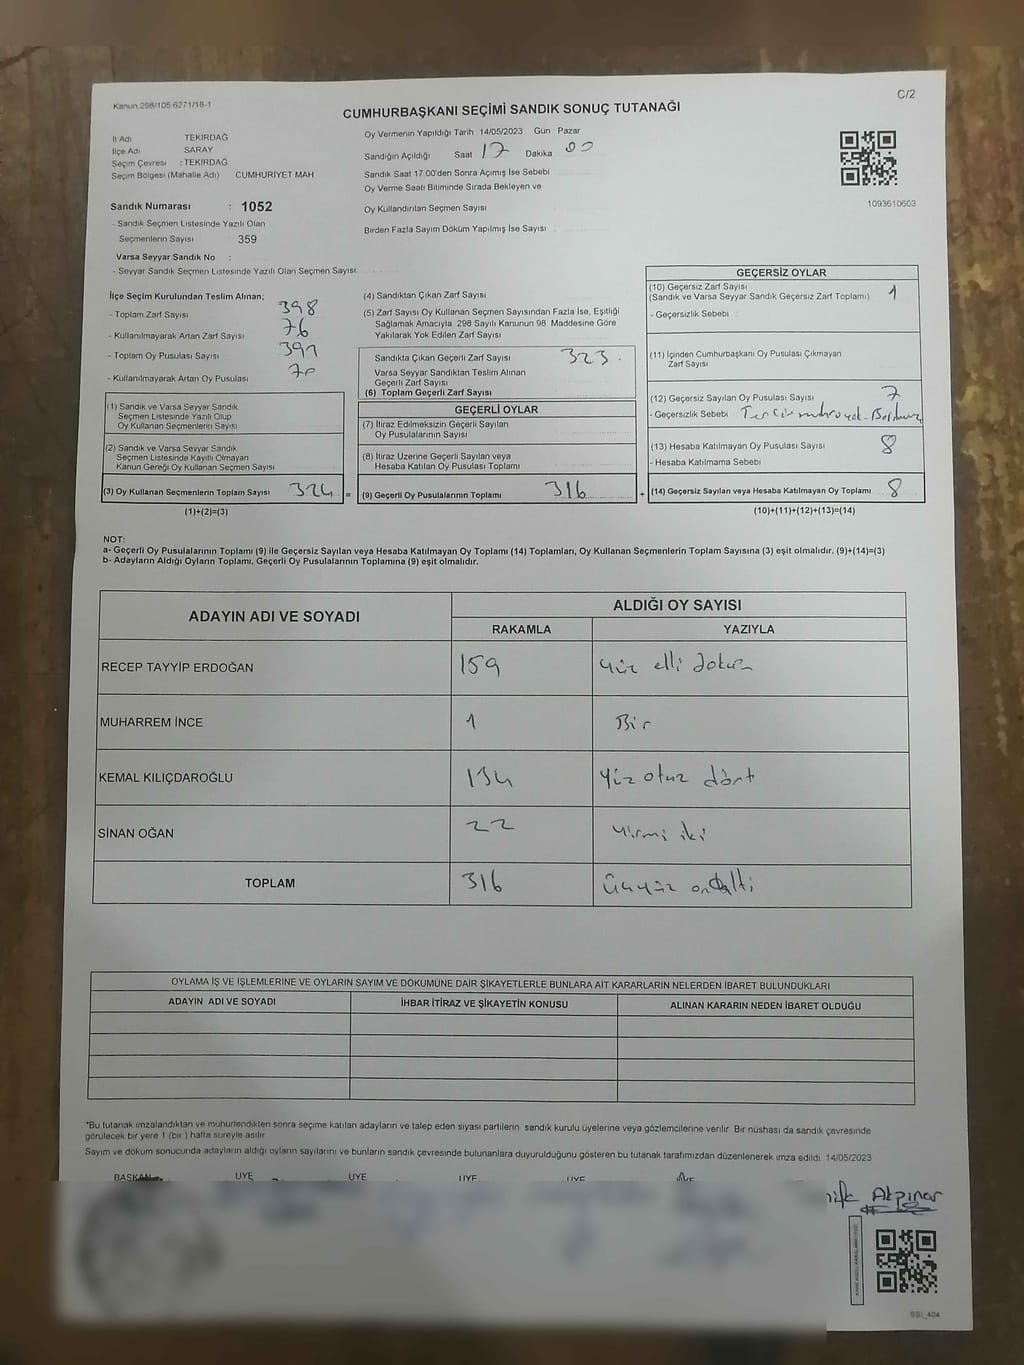 Kanun 298/105 6271/18-1
C/2
CUMHURBAŞKANI SEÇİMİ SANDIK SONUÇ TUTANAĞI
İl Adı TEKİRDAĞ
İlçe Adı SARAY
Seçim Çevresi : TEKİRDAĞ
Seçim Bölgesi (Mahalle Adı) CUMHURİYET MAH
Oy Vermenin Yapıldığı Tarih 14/05/2023 Gün Pazar
Sandığın Açıldığı Saat 17 Dakika 00
Sandık Saat 17.00'den Sonra Açımış İse Sebebi
Oy Verme Saati Bitiminde Sırada Bekleyen ve
Oy Kullandırılan Seçmen Sayısı
Birden Fazla Sayım Döküm Yapılmış İse Sayısı
1093610603
Sandık Numarası : 1052
- Sandık Seçmen Listesinde Yazılı Olan
Seçmenlerin Sayısı 359
Varsa Seyyar Sandık No :
- Seyyar Sandık Seçmen Listesinde Yazılı Olan Seçmen Sayısı
İlçe Seçim Kurulundan Teslim Alınan;
- Toplam Zarf Sayısı 398
- Kullanılmayarak Artan Zarf Sayısı 76
- Toplam Oy Pusulası Sayısı 391
- Kullanılmayarak Artan Oy Pusulası 70
(1) Sandık ve Varsa Seyyar Sandık
Seçmen Listesinde Yazılı Olup
Oy Kullanan Seçmenlerin Sayısı
(2) Sandık ve Varsa Seyyar Sandık
Seçmen Listesinde Kayıtlı Olmayan
Kanun Gereği Oy Kullanan Seçmen Sayısı
(3) Oy Kullanan Seçmenlerin Toplam Sayısı 324 =
(1)+(2)=(3)
(4) Sandıktan Çıkan Zarf Sayısı
(5) Zarf Sayısı Oy Kullanan Seçmen Sayısından Fazla İse, Eşitliği
Sağlamak Amacıyla 298 Sayılı Kanunun 98 Maddesine Göre
Yakılarak Yok Edilen Zarf Sayısı
Sandıkta Çıkan Geçerli Zarf Sayısı 323
Varsa Seyyar Sandıktan Teslim Alınan
Geçerli Zarf Sayısı
(6) Toplam Geçerli Zarf Sayısı
GEÇERLİ OYLAR
(7) İtiraz Edilmeksizin Geçerli Sayılan
Oy Pusulalarının Sayısı
(8) İtiraz Üzerine Geçerli Sayılan veya
Hesaba Katılan Oy Pusulası Toplamı
(9) Geçerli Oy Pusulalarının Toplamı 316 +
GEÇERSİZ OYLAR
(10) Geçersiz Zarf Sayısı
(Sandık ve Varsa Seyyar Sandık Geçersiz Zarf Toplamı) 1
- Geçersizlik Sebebi
(11) İçinden Cumhurbaşkanı Oy Pusulası Çıkmayan
Zarf Sayısı
(12) Geçersiz Sayılan Oy Pusulası Sayısı 7
- Geçersizlik Sebebi
(13) Hesaba Katılmayan Oy Pusulası Sayısı 8
- Hesaba Katılmama Sebebi
(14) Geçersiz Sayılan veya Hesaba Katılmayan Oy Toplamı 8
(10)+(11)+(12)+(13)=(14)
NOT:
a- Geçerli Oy Pusulalarının Toplamı (9) ile Geçersiz Sayılan veya Hesaba Katılmayan Oy Toplamı (14) Toplamları, Oy Kullanan Seçmenlerin Toplam Sayısına (3) eşit olmalıdır. (9)+(14)=(3)
b- Adayların Aldığı Oyların Toplamı, Geçerli Oy Pusulalarının Toplamına (9) eşit olmalıdır.
ADAYIN ADI VE SOYADI
ALDIĞI OY SAYISI
RAKAMLA YAZIYLA
RECEP TAYYİP ERDOĞAN 159 yüz elli dokuz
MUHARREM İNCE 1 Bir
KEMAL KILIÇDAROĞLU 134 yüz otuz dört
SİNAN OĞAN 22 yirmi iki
TOPLAM 316 üçyüz onaltı
OYLAMA İŞ VE İŞLEMLERİNE VE OYLARIN SAYIM VE DÖKÜMÜNE DAİR ŞİKAYETLERLE BUNLARA AİT KARARLARIN NELERDEN İBARET BULUNDUKLARI
ADAYIN ADI VE SOYADI İHBAR İTİRAZ VE ŞİKAYETİN KONUSU ALINAN KARARIN NEDEN İBARET OLDUĞU
*Bu tutanak imzalandıktan ve mühürlendikten sonra seçime katılan adayların ve talep eden siyasi partilerin sandık kurulu üyelerine veya gözlemcilerine verilir. Bir nüshası da sandık çevresinde
görülecek bir yere 1 (bir) hafta süreyle asılır
Sayım ve döküm sonucunda adayların aldığı oyların sayılarını ve bunların sandık çevresinde bulunanlara duyurulduğunu gösteren bu tutanak tarafımızdan düzenlenerek imza edildi 14/05/2023
BAŞKAN ÜYE ÜYE ÜYE ÜYE ÜYE
Akpınar
SSİ_404